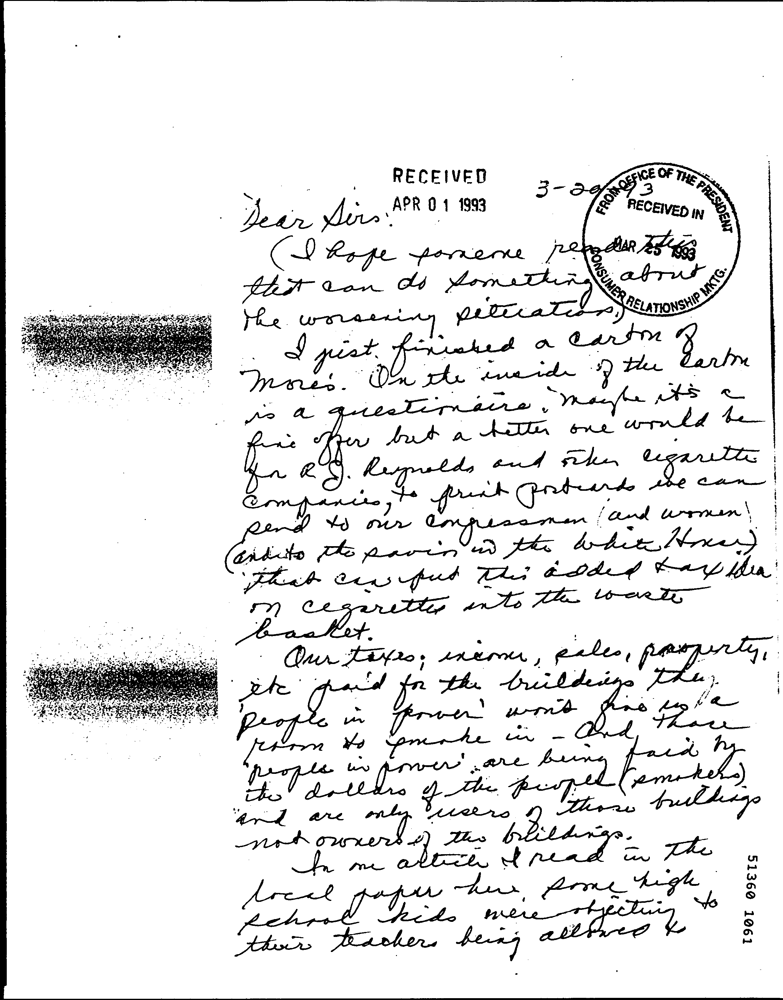 RECEIVED
APR 01 1993
3-20 93
FROM OFFICE OF THE PRESIDENT
RECEIVED IN
MAR 25 1993
CONSUMER RELATIONSHIP MKTG.
Dear Sirs:
(I hope someone reads this
that can do something about
the worsening situation.)
I just finished a carton of
More's. On the inside of the carton
is a questionaire. Maybe it's a
fine offer but a better one would be
for R.J. Reynolds and other cigarette
companies, to print postcards we can
send to our congressmen (and women)
(and to the savior in the White House)
that can put this added tax idea
on cigarettes into the waste
basket.
Our taxes; income, sales, property,
etc paid for the buildings the
'people in power' won't give us a
room to smoke in - And, those
'people in power' are being paid by
the dollars of the people (smokers)
and are only users of those buildings
not owners of the buildings.
In one article I read in the
local paper here, some high
school kids were objecting to
their teachers being allowed to
51360 1061